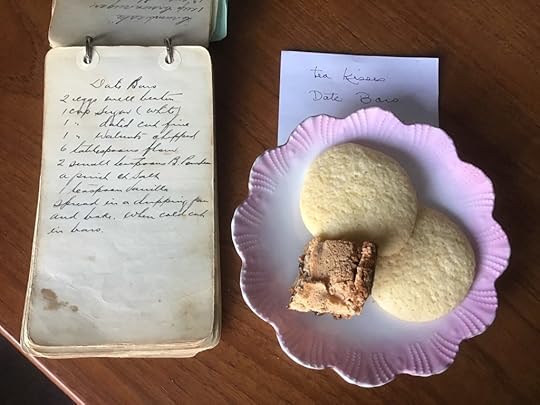 1 cup brown sugar
Date Bars
2 eggs well beaten
1 cup sugar (White)
1 " dates cut fine
1 " Walnuts chipped
6 tablespoons flour
2 small teaspoons B. Powder
a pinch of salt
teaspoon vanilla
spread in a dripping pan
and bake. When cold cut
in bars.
tea Kisses
Date Bars